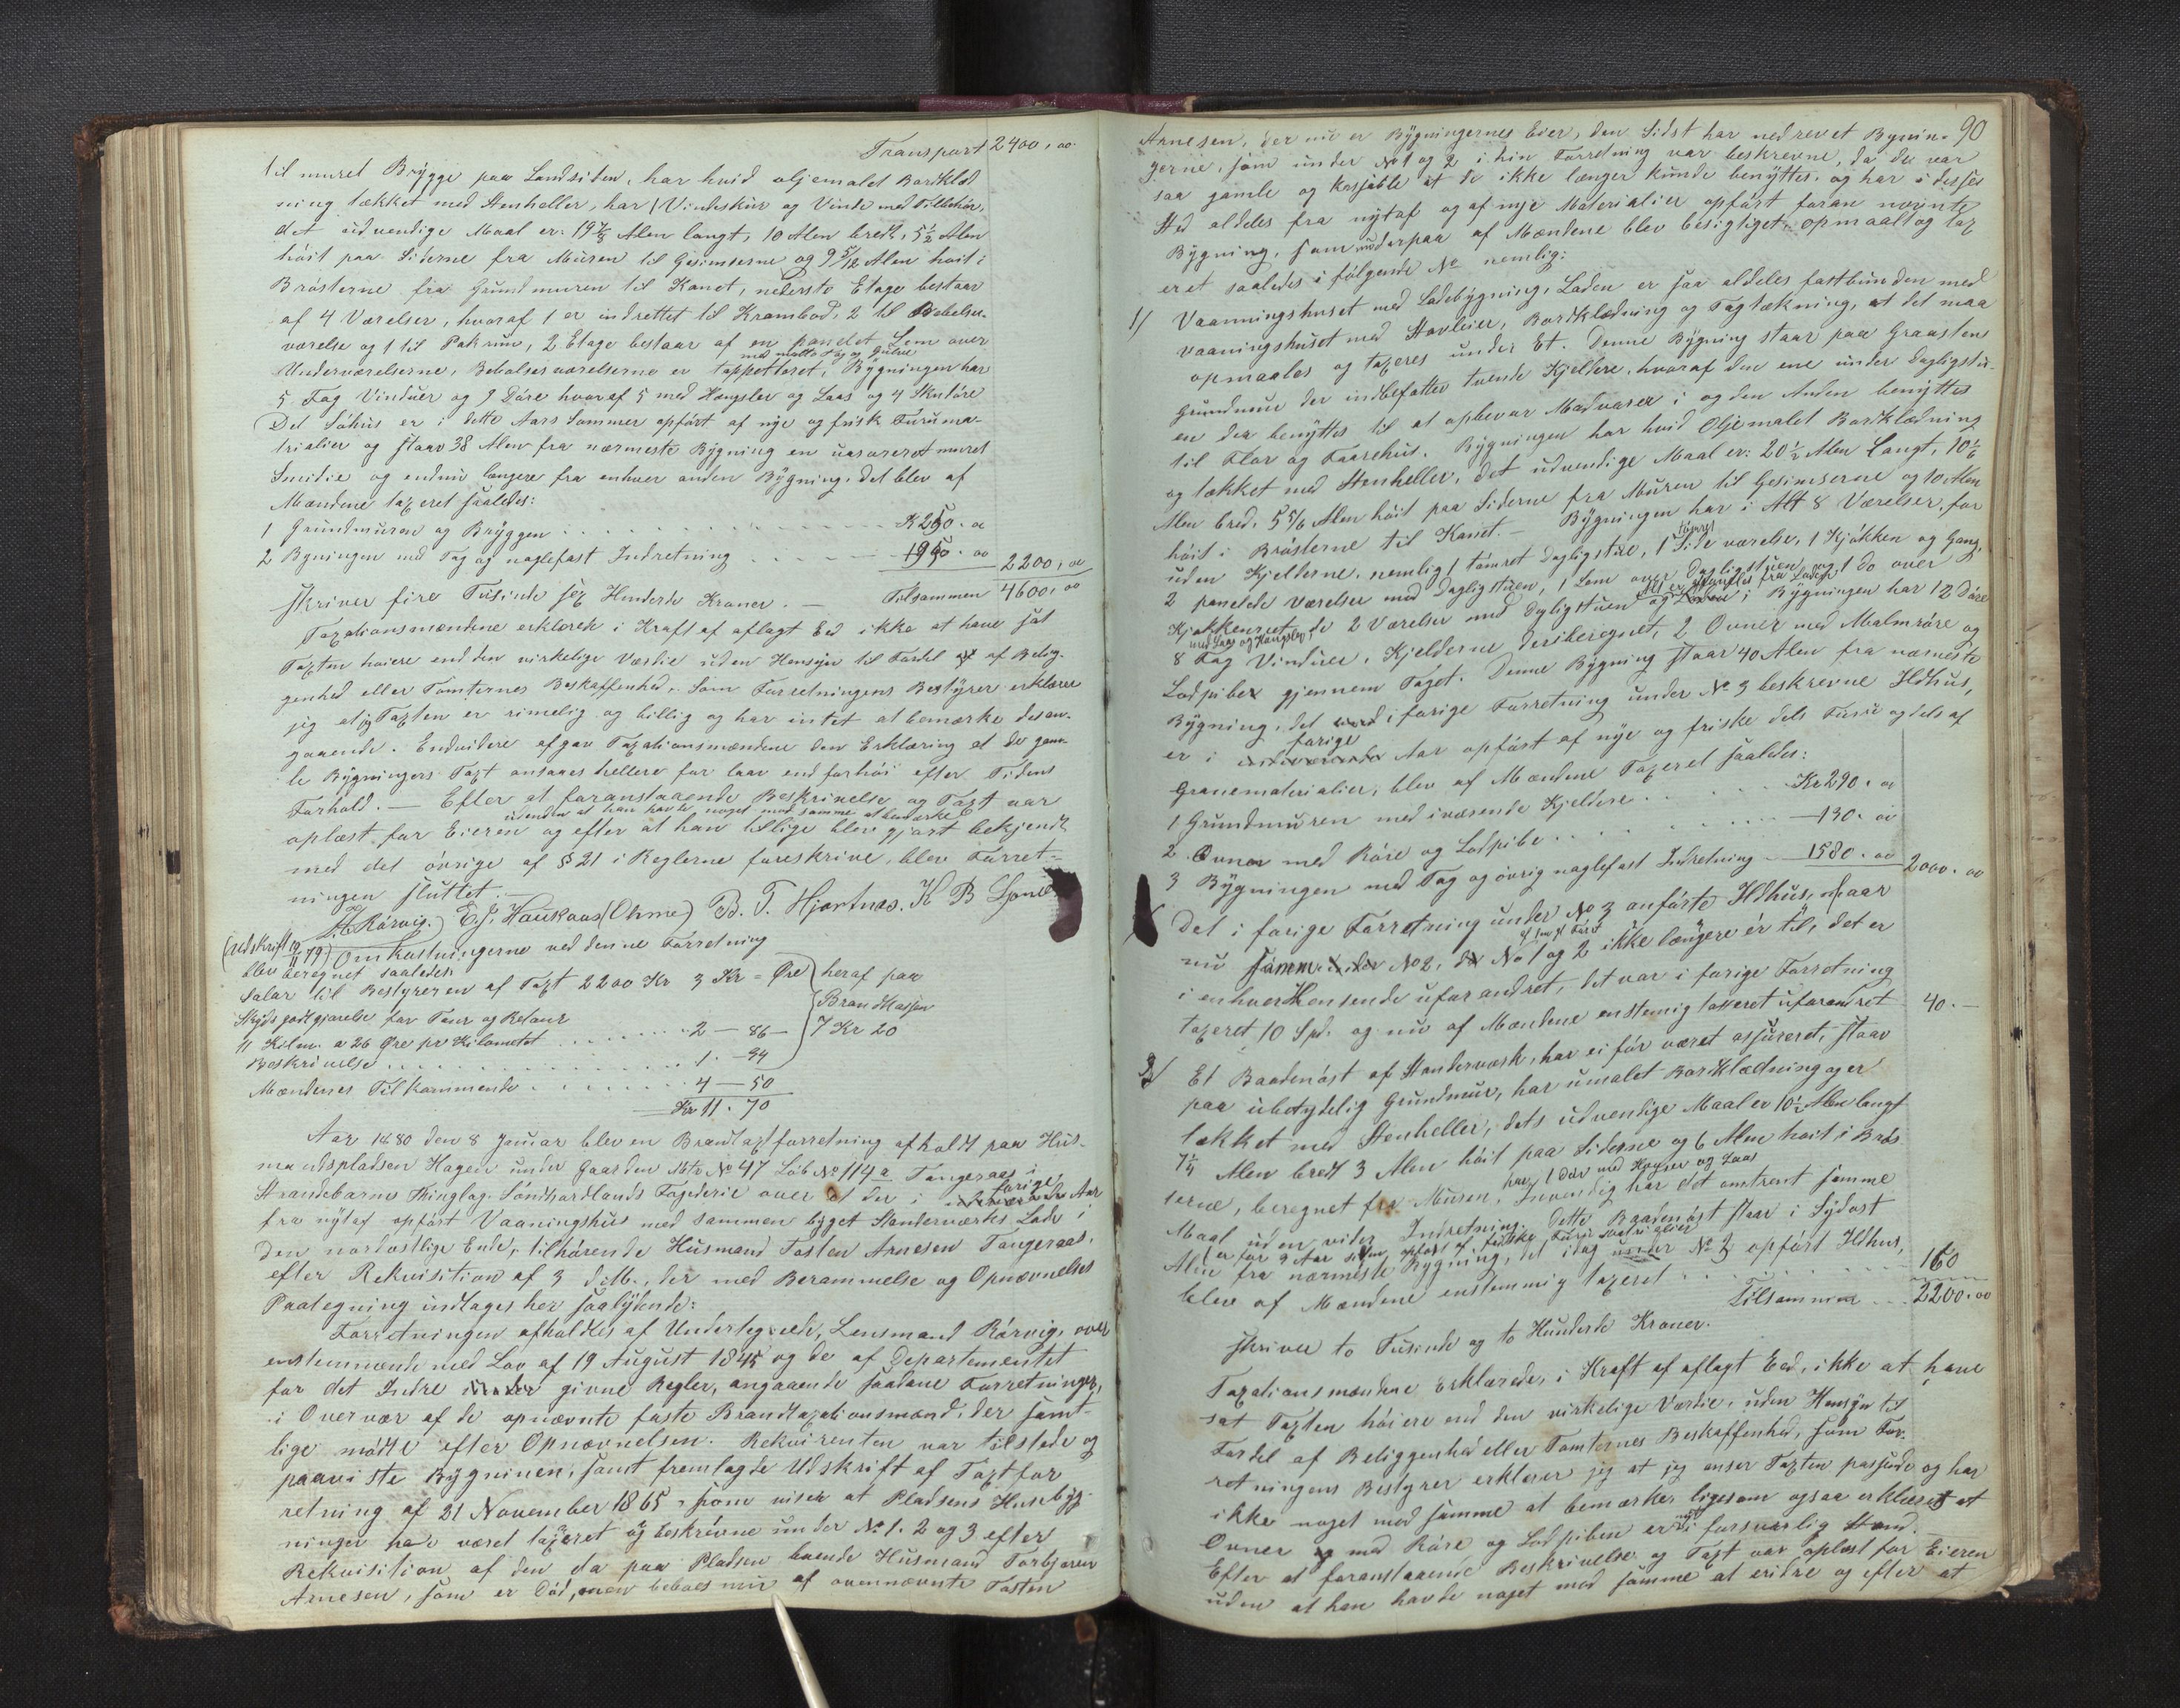 Transport 2400,00
til muret Brygge paa Landsiden, har hvid oljemalet Bordklæd
ning tækket med Stenheller, har 1 Vindeskur og Vinde med Tilbehør,
det udvendige Maal er: 19 7/8 Alen langt, 10 Alen bredt, 5 1/2 Alen
høit paa Siderne fra Muren til Gesimserne og 9 5/12 Alen høit i
Brøsterne fra Grundmuren til Kanet, nederste Etage bestaar
af 4 Værelser, hvoraf 1 er indrettet til Krambod, 2 til Bebelses
værelse og 1 til Pakrum, 2 Etage bestaar af en pandet Lem over
med malte Tag og Gulve
Underværelserne, Bebolsesværelserne er tappetseret, Bygningen har
5 Fag Vinduer og 9 Døre hvoraf 5 med Hængsler og Laas og 4 Skudøre
Det Søhus er i dette Aars Sommer opført af nye og frisk Furuma-
trialier og staar 38 Alen fra nærmeste Bygning en uasureret muret
Smidie og endnu længere fra enhver anden Bygning. Det blev af
Mændene taxeret saaledes:
1 Grundmuren og Bryggen . . . . K 250. 00
2 Bygningen med Tag og naglefast Indretning . . . . 1950. 00 2200,00
skriver fire Tusinde sex Hunderde Kroner. — Tilsammen 4600,00
Taxationsmændene erklærede i Kraft af aflagt Eed ikke at have sat
Taxten høiere end den virkelige Værdie uden Hensyn til Fordel af Belig-
genhed eller Tomternes Beskaffenhed. Som Forretningens Bestyrer erklærer
jeg at jeg Taxten er rimelig og billig og har intet at bemærke desan-
gaaende. Endvidere afgav Taxationsmændene den Erklæring at de gam-
le Bygningers Taxt ansaaes hellere for lav end for høi efter Tidens
Forhold. — Efter at foranstaaende Beskrivelse og Taxt var
uden at han havde noget mod samme at bemærke
oplæst for Eieren og efter at han tillige blev gjort bekjendt
med det øvrige af § 21 i Reglerne foreskrive, blev Forret-
ningen sluttet. —
Rørvig. E. J. Haukaas (Ohme) B. T. Hjortnæs. K B
(udskrift 19/11 79) Omkostningerne ved denne Forretning
blev beregnet saaledes
Salær til Bestyreren af Taxt 2200 Kr 3 Kr - Øre heraf paa
Skydsgodtgjørelse for Tour og Retour Brandkassen
11 Kilm. a 26 Øre pr Kilometet . . . . 2 — 86 — 7 Kr 20
Beskrivelse . . . . 1. — 34
Mændenes Tilkommende . . . . 4 — 50
Kr 11. 70
Aar 1880 den 8 Januar blev en Brandtaxtforretning afholdt paa Hus-
mandspladsen Hagen under Gaarden Mtr No 47 Løb No 114a Tangeraas i
Strandebarms Thinglag, Søndhordlands Fogderie over et der i forige Aar
fra nytaf opført Vaaningshus med sammen bygget Standerværks Lade i
den nordostlige Ende, tilhørende Husmand Tosten Arnesen Tangeraas,
efter Rekvisition af 3 d. M., der med Berammelse og Opnævnelses
Paategning indtages her saalydende:
Forretningen afholdtes af Undertegnede, Lensmand Rørvig, over
enstemmende med Lov af 19 August 1845 og de af Departementet
for det Indre givne Regler, angaaende saadane Forretninger,
i Overvær af de opnævnte faste Brandtaxationsmænd, der samt-
lige mødte efter Opnævnelsen. Rekvirenten var tilstede og
paaviste Bygninen, samt fremlagde Udskrift af Taxtfor
retning af 21 November 1865, som viser at Pladsens Husebyg-
ninger have været taxeret og beskrevne under No 1. 2 og 3 efter
Rekvisition af den da paa Pladsen boende Husmand Torbjørn
Arnesen, som er Død, men beboes nu af ovennævnte Tosten
90
Arnesen, der nu er Bygningernes Eier, den Sidst har nedrevet Bygnin-
gerne, som under No 1 og 2 i hin Forretning var beskrevne, da de var
saa gamle og kasjable at de ikke længer kunde benyttes, og har i desses
Sted aldeles fra nytaf og af nye Materialier opført foran nævnte
Bygning, som paa af Mændene blev besigtiget, opmaalt og tax
eret saaledes i følgende No nemlig:
1/ Vaanningshuset med Ladebygning, Laden er saa aldeles fastbunden med
vaaningshuset med Stavleier, Bordklædning og Tagtækning, at det maa
opmaales og taxeres under Et. Denne Bygning staar paa Graastens
Grundmur der indbefatter tvende Kjeldere, hvoraf den ene under Dagligstu-
en der benyttes til at opbevar Madvarer i og den Anden benyttes
til Flor og Faarehus. Bygningen har hvid Oljemalet Bordklædning
og tækket med Stenheller, det udvendige Maal er: 20 1/2 Alen langt, 10 1/6
Alen bred, 5 5/6 Alen høit paa Siderne fra Muren til Gesimserne og 10 Alen
høit i Brøsterne til Kanet. — Bygningen har i Alt 8 Værelser, for
uden Kjelderne, nemlig 1 tømret Dagligstue, 1 tømret Sideværelse, 1 Kjøkken og Gang,
2 panelede Værelser med Dagligstuen, 1 Lem over Dagligstuen og 1 do over
Kjøkkenet, de 2 Værelser med Dagligstuen og i Bygningen har 12 Døre
med Laas og Hængsler,
8 Fag Vinduer, Kjelderne deriberegnet, 2 Ovner med Malmrøre og
Lodpiber gjennem Taget. Denne Bygning staar 40 Alen fra nærmeste
Bygning, det i forige Forretning under No 3 beskrevne Ildhus,
er i forige Aar opført af nye og friske dels Furu og dels af
Granematerialier, blev af Mændene Taxeret saaledes:
1 Grundmuren med iværende Kjeldere . . . . Kr 290. 00
2 Ovner med Røre og Lodpibe . . . . — 130. 00
3 Bygningen med Tag og øvrig naglefast Indretning — 1580. 00 2000. 00
Det i forige Forretning under No 3 anførte Ildhus, staar
nu No 2, No 1 og 2 ikke længere er til, det er
i enhver Henseende uforandret, det var i forige Forretning
taxeret 10 Spd. og nu af Mændene enstemig taxeret uforandret 40. —
3/ Et Baadenøst af Standerværk, har ei før været assureret, staar
paa ubetydelig Grundmur, har umalet Bordklædning og er
tækket med Stenheller, dets udvendige Maal er 10 1/2 Alen langt
7 1/4 Alen bredt 3 Alen høit paa Siderne og 6 Alen høit i Brøs
har 1 Dør med Hængsler og Laas
terne, beregnet fra Muren, Invendig har det omtrent samme
Maal uden vider Indretning. Dette Baadenøst staar i Sydost
er for 3 Aar siden opført af friske Furu matrialier
Alen fra nærmeste Bygning, et idag under No 2 opført Ildhus,
blev af Mændene enstemmig taxeret . . . . 160
Tilsammen . . 2200. 00
skriver to Tusinde og to Hunderde Kroner.
Taxationsmændene Erklærede, i Kraft af aflagt Eed, ikke at have
sat Taxten høiere end den virkelige Værdie, uden Hensyn til
Fordel af Beliggenhed eller Tomternes Beskaffenhed, som For-
retningens Bestyrer erklærer jeg at jeg anser Taxten passende og har
ikke noget mod samme at bemærke, ligesom ogsaa erklæret at
Ovner med Røre og Lodpiben er i forsvarlig Stand.
Efter at foranstaaende Beskrivelse og Taxt var oplæst for Eieren
uden at han havde noget mod samme at erindre og efter at